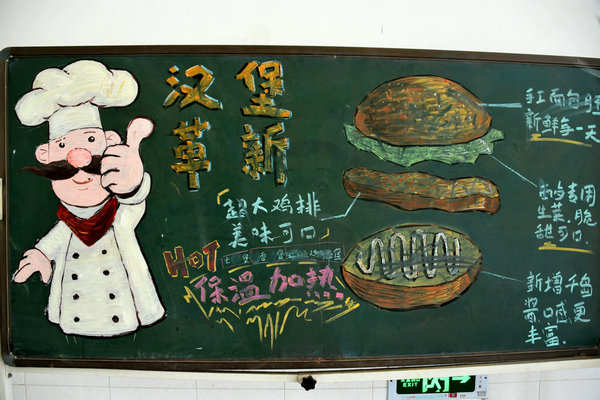 汉堡
革新
手工面包胚
新鲜每一天
超大鸡排
美味可口
专用
生菜,脆
甜可口.
HOT
保温加热
新增千岛
酱口感更
丰富.
EXIT